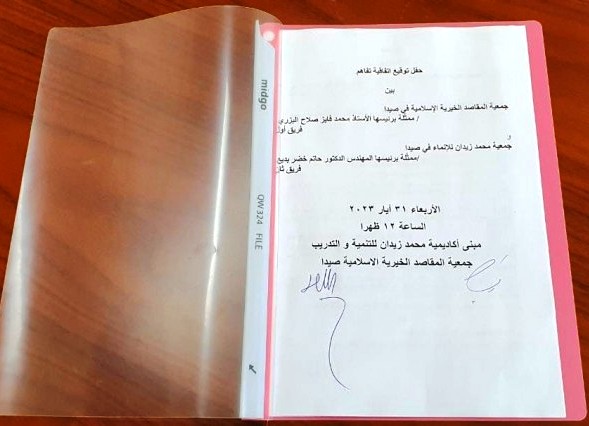 حفل توقيع اتفاقية تفاهم
بين
جمعية المقاصد الخيرية الإسلامية في صيدا
/ ممثلة برئيسها الأستاذ محمد فايز صلاح البزري
فريق أول
و
جمعية محمد زيدان للانماء في صيدا
/ممثلة برئيسها المهندس الدكتور حاتم خضر بديع
فريق ثان
الأربعاء ٣١ أيار ٢٠٢٣
الساعة ١٢ ظهرا
مبنى أكاديمية محمد زيدان للتنمية و التدريب
جمعية المقاصد الخيرية الاسلامية صيدا
midgo
QW324 FILE